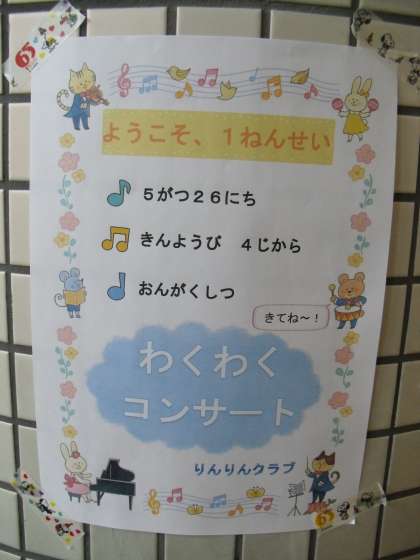 ようこそ、１ねんせい
５がつ２６にち
きんようび　４じから
おんがくしつ
きてね～！
わくわく
コンサート
りんりんクラブ